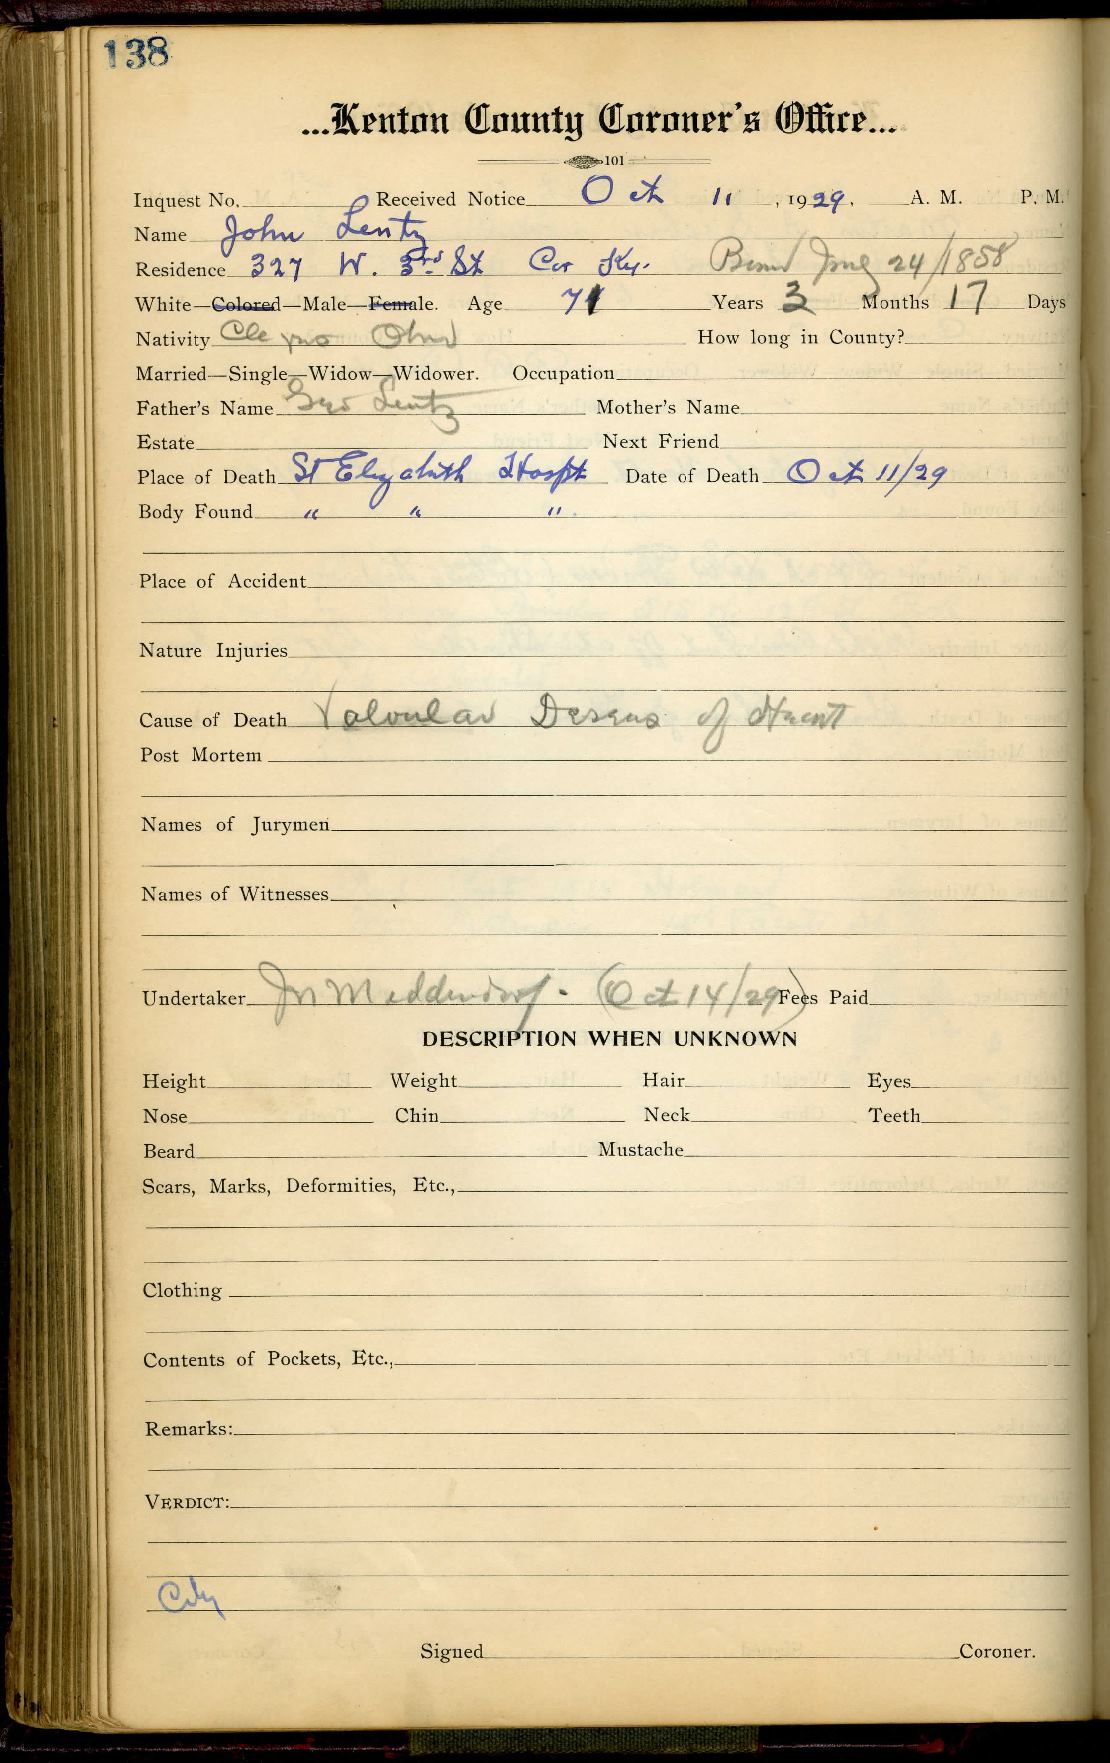 138
...Kenton County Coroner's Office...
101
Inquest No. Received Notice Oct 11, 1929, A. M. P. M.
Name John Lentz
Residence 327 W. 3rd St Cov Ky. Born 24/1858
White—Colored—Male—Female. Age 71 Years 3 Months 17 Days
Nativity Ohio How long in County?
Married—Single—Widow—Widower. Occupation
Father's Name Geo Lentz Mother's Name
Estate Next Friend
Place of Death St Elizabeth Hospt Date of Death Oct 11/29
Body Found " " ".
Place of Accident
Nature Injuries
Cause of Death Valvular Deseas of Heart
Post Mortem
Names of Jurymen
Names of Witnesses
Undertaker Middendorf. (Oct 14/29) Fees Paid
DESCRIPTION WHEN UNKNOWN
Height Weight Hair Eyes
Nose Chin Neck Teeth
Beard Mustache
Scars, Marks, Deformities, Etc.,
Clothing
Contents of Pockets, Etc.,
Remarks:
VERDICT:
City
Signed Coroner.